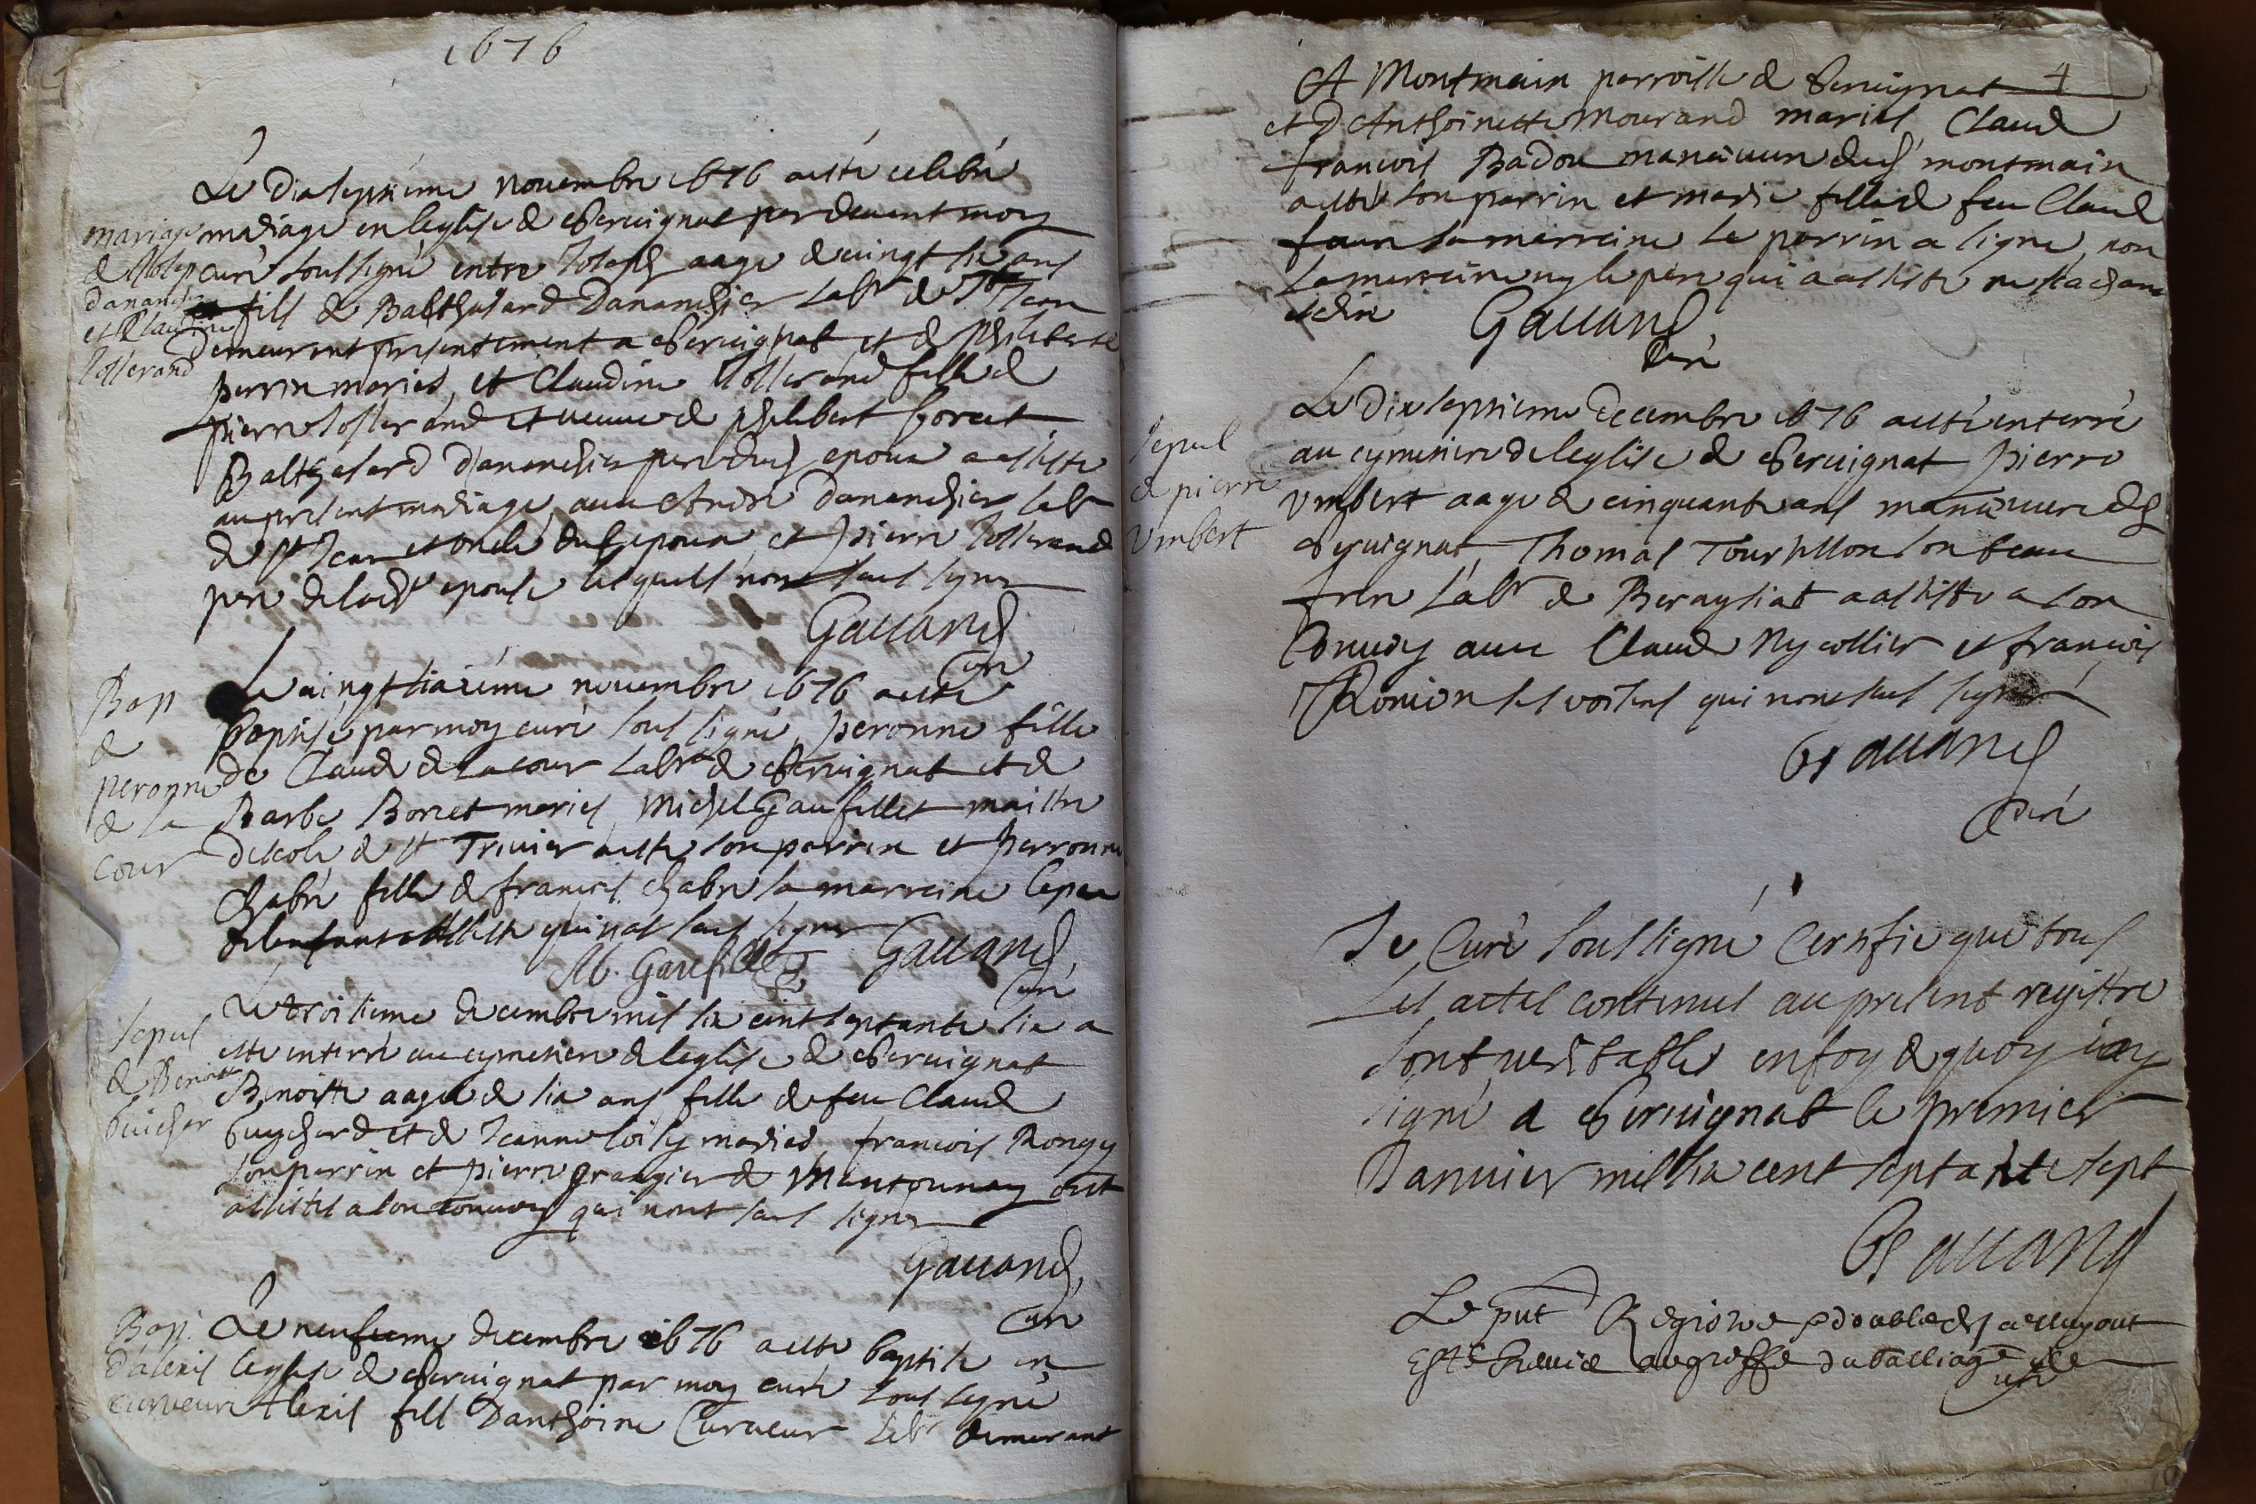 1676
Le dixseptiéme novembre 1676 a esté celebré
mariage en leglise de Servignat par devant moy
curé soussigné entre Joseph aagé de vingt six ans
fils de Balthasard Dananchier labr de St Jean
demeurant presentement a Servignat et de philiberte
perrin mariés, et Claudine Tosserand fille de
pierre Tosserand et veuve de philibert
Balthasard Dananchier pere dud epoux a assisté
au present mariage avec André Dananchier labr
de St Jean et oncle dud epoux et pierre Tosserand
pere de lad epouse lesquels n'ont sceu signer
Gavand
curé
mariage
de Joseph
Dananchier
et Claudine
Tosserand
Le vingtsixiéme novembre 1676 a esté
baptisé par moy curé soussigné, peronne fille
de Claude de la cour labr de Servignat et de
Barbe Borret mariés, Michel Gaufillet maistre
descole de St Trivier a esté son parrin et perronne
Chabré fille de francois chabre sa marraine le pere
de lenfant a assisté qui n'a sceu signer
M. Gaufillet Gavand
curé
Bap
de
peronne
de la
cour
Le troisieme decembre mil six cent septante six a
esté enterré au cymetiere de leglise de Servignat
Benoiste aagée de six ans fille de feu Claude
buychard et de Jeanne loisy mariés, francois Rongy
son parrin et pierre grangier de Mantounay ont
assistés a son convoy qui n'ont sceu signer
Gavand
curé
sepul
de Benoiste
buichar
Le neufieme decembre 1676 a esté baptisé en
leglise de Servignat par moy curé soussigné
Alexis fils Danthoine Curveur labr demeurant
Bap.
dalexis
curveur
4
A Montmain parroisse de Servignat
et D Anthoinette Mourand mariés, Claude
francois Badou manœuvre dud montmain
a esté son parrin et marie fille de feu Claude
faur sa marraine le parrin a signé, non
la marraine ny le pere qui a assisté ne sachant
escrire Gavand
curé
Le dixseptieme decembre 1676 a esté enterré
au cymetiere de leglise de Servignat pierre
Vmbert aagé de cinquante ans manœuvre dud
Servignat, Thomas Tourillon son beau
frere labr de Bereyziat a assisté a son
convoy avec Claude Nycollier et francois
Ronion ses voisins qui n'ont sceu signer
Gavand
curé
sepul
de pierre
Vmbert
Je Curé soussigné Certifie que tous
Les actes contenus au present registre
sont veritables en foy de quoy jay
signé a Servignat le premier
Januier mil six cent septante sept
Gavand
curé
Le pnt Registre double
Esté au greffe du balliage